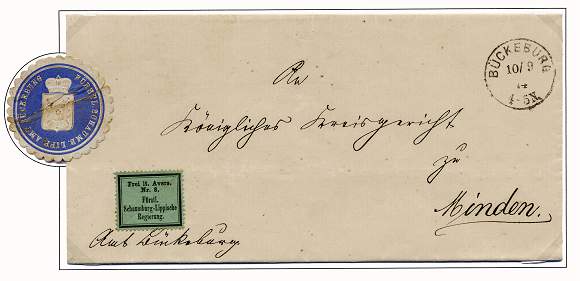 FÜRSTL. SCHAUMB. LIPP. AMT BÜCKEBURG
BÜCKEBURG
10/9
74
4-5N.
An
Königliches Kreisgericht
zu
Minden.
Frei lt. Avers.
Nr. 8.
Fürstl.
Schaumburg-Lippische
Regierung.
Amt Bückeburg